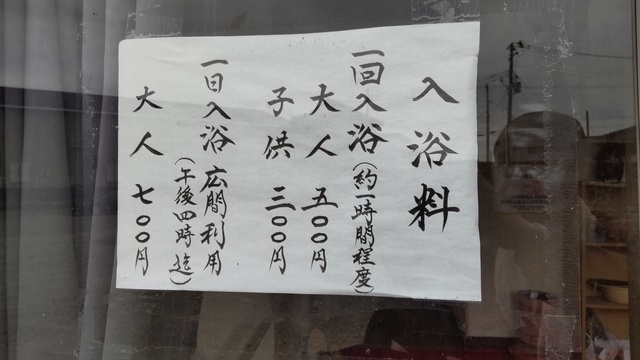 入浴料
一回入浴(約一時間程度)
大人 五〇〇円
子供 三〇〇円
一日入浴 広間利用
(午後四時迄)
大人 七〇〇円